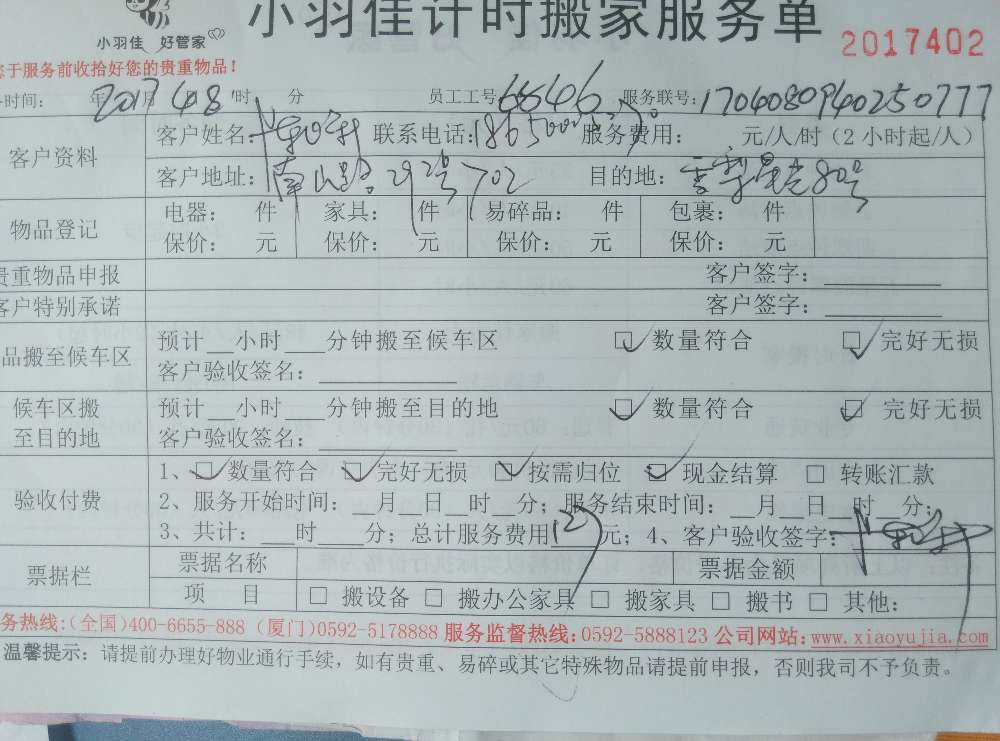 小羽佳 好管家
小羽佳计时搬家服务单
2017402
您于服务前收拾好您的贵重物品!
时间: 2017年 4月8 时 分 员工工号 6646 服务联号: 1704080940250777
客户资料 客户姓名: 联系电话: 服务费用: 元/人/时(2小时起/人)
客户地址: 南山路 292号702 目的地: 80号
物品登记 电器: 件 家具: 件 易碎品: 件 包裹: 件
保价: 元 保价: 元 保价: 元 保价: 元
贵重物品申报 客户签字:
客户特别承诺 客户签字:
品搬至候车区 预计__小时___分钟搬至候车区 ☑ 数量符合 ☑ 完好无损
客户验收签名:
候车区搬至目的地 预计__小时___分钟搬至目的地 ☑ 数量符合 ☑ 完好无损
客户验收签名:
验收付费 1、☑数量符合 ☑完好无损 ☑按需归位 ☑现金结算 □ 转账汇款
2、服务开始时间:__月__日__时__分;服务结束时间:__月__日__时__分;
3、共计:___时____分;总计服务费用 127 元;4、客户验收签字:
票据栏 票据名称 票据金额
项 目 □ 搬设备 □ 搬办公家具 □ 搬家具 □ 搬书 □ 其他:
务热线:(全国)400-6655-888 (厦门)0592-5178888 服务监督热线:0592-5888123 公司网站:www.xiaoyujia.com
温馨提示:请提前办理好物业通行手续,如有贵重、易碎或其它特殊物品请提前申报,否则我司不予负责。